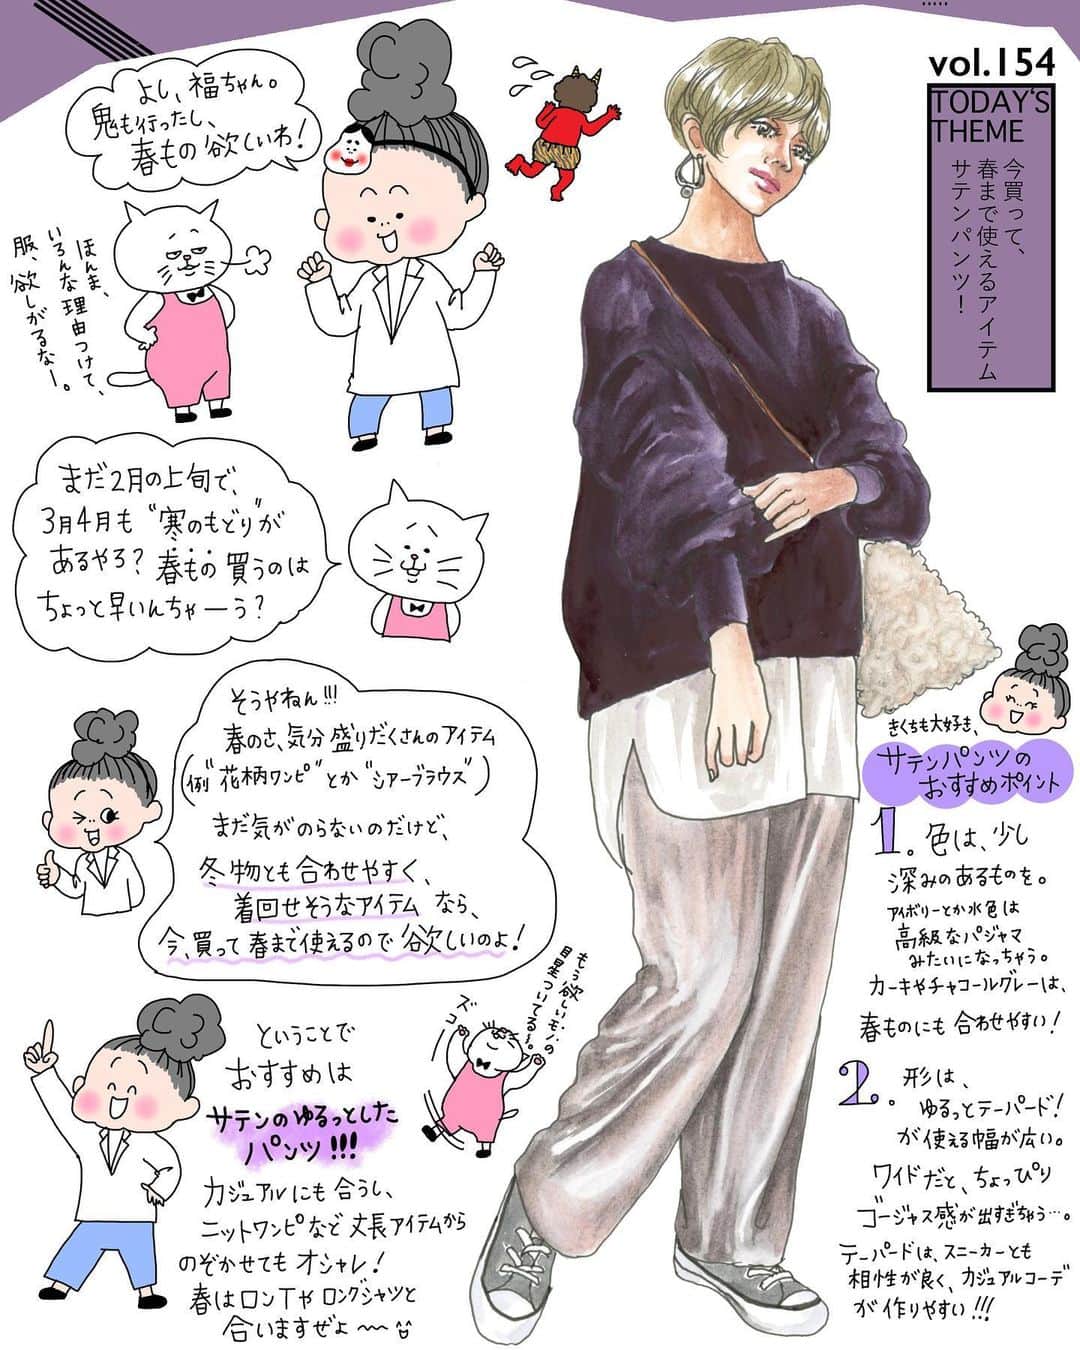 vol.154
TODAY'S
THEME
今買って、
春まで使えるアイテム
サテンパンツ！
よし、福ちゃん。
鬼も行ったし、
春もの欲しいわ！
ほんま、
いろんな理由つけて、
服、欲しがるなー。
まだ2月の上旬で、
3月4月も"寒のもどり"が
あるやろ？春もの買うのは
ちょっと早いんちゃーう？
そうやねん!!!
春のさ、気分盛りだくさんのアイテム
(例"花柄ワンピ"とか"シアーブラウス")
まだ気がのらないのだけど、
冬物とも合わせやすく、
着回せそうなアイテムなら、
今、買って春まで使えるので欲しいのよ！
もう、欲しいモノの
目星ついてるー。
ズコ
ということで
おすすめは
サテンのゆるっとした
パンツ!!!
カジュアルにも合うし、
ニットワンピなど丈長アイテムから
のぞかせてもオシャレ！
春はロンTやロングシャツと
合いますぜよ〜〜
きくちも大好き、
サテンパンツの
おすすめポイント
1。色は、少し
深みのあるものを。
アイボリーとか水色は
高級なパジャマ
みたいになっちゃう。
カーキやチャコールグレーは、
春ものにも合わせやすい！
2。形は、
ゆるっとテーパード！
が使える幅が広い。
ワイドだと、ちょっぴり
ゴージャス感が出すぎちゃう…。
テーパードは、スニーカーとも
相性が良く、カジュアルコーデ
が作りやすい!!!